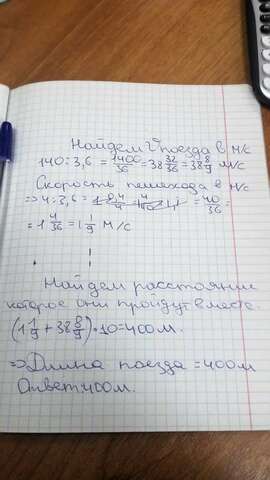 Найдем V поезда в м/с
140:3,6 = 1400/36 = 38 32/36 = 38 8/9 м/с
Скорость пешехода в м/с
⇒ 4:3,6 = = 40/36 =
= 1 4/36 = 1 1/9 м/с
Найдем расстояние
которое они пройдут вместе.
(1 1/9 + 38 8/9) · 10 = 400 м.
⇒ Длина поезда = 400 м
Ответ: 400 м.